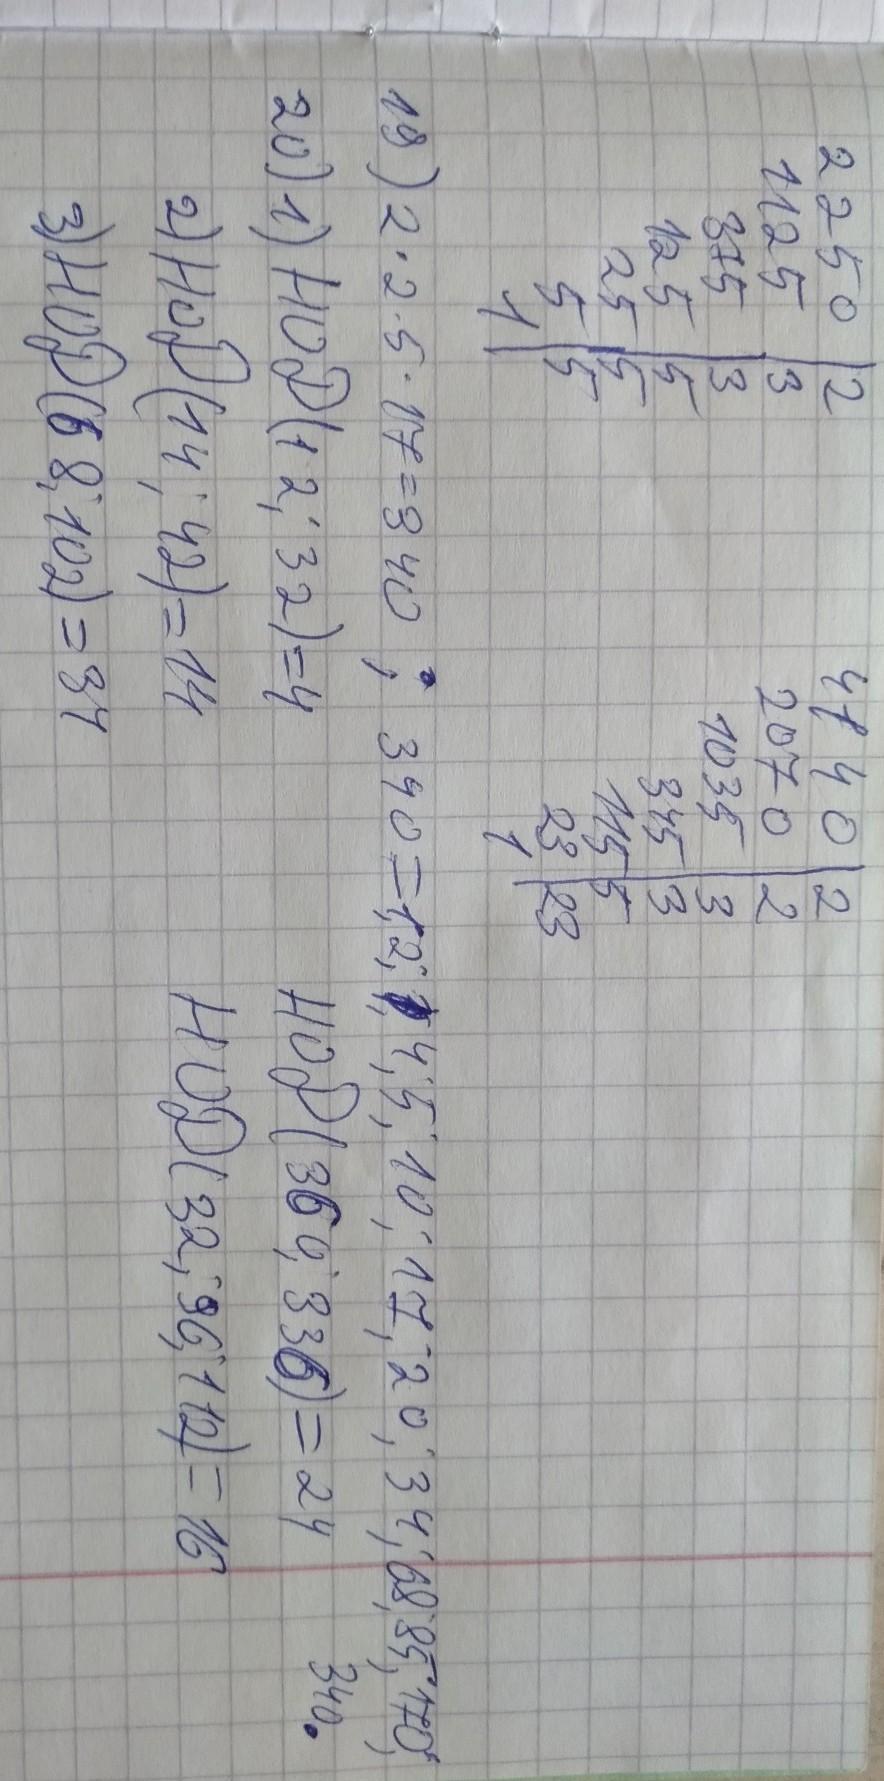 2250 | 2
1125 | 3
375 | 3
125 | 5
25 | 5
5 | 5
1
4140 | 2
2070 | 2
1035 | 3
345 | 3
115 | 5
23 | 23
1
19) 2·2·5·17=340; 340=1,2,4,5,10,17,20,34,68,85,170,
340.
20) 1) НОД(12; 32)=4
НОД(360; 336)=24
2) НОД(14; 42)=14
НОД(32; 96; 112)=16
3) НОД(68; 102)=34